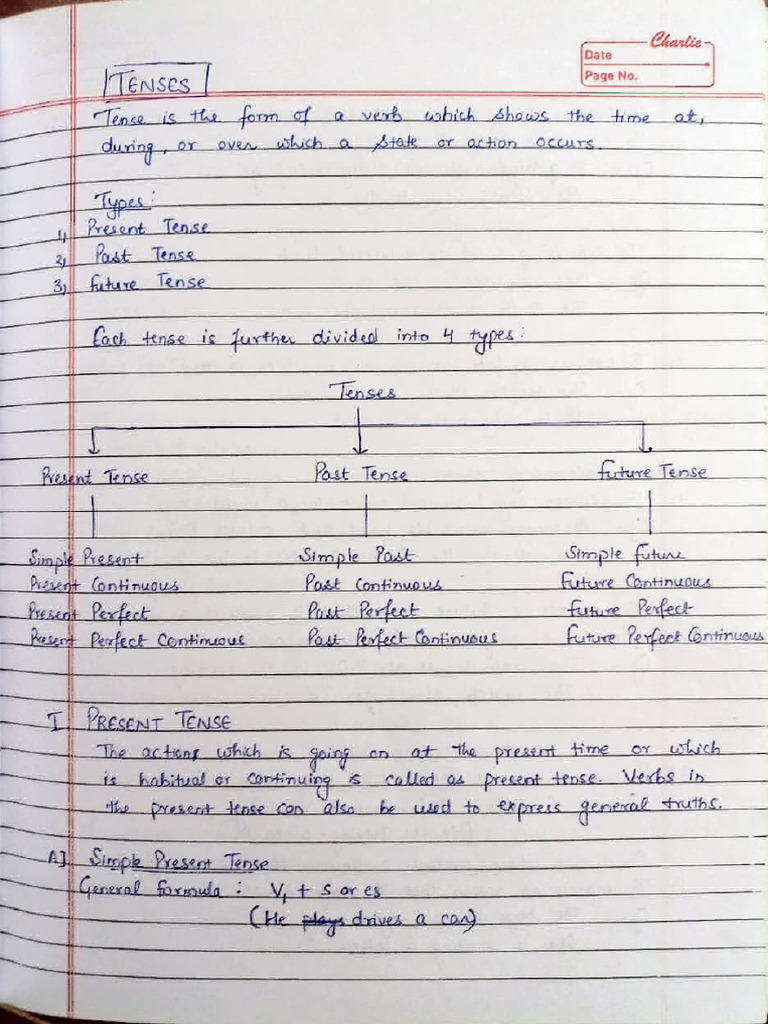 Charlie
Date
Page No.
TENSES
Tense is the form of a verb which shows the time at,
during, or over which a state or action occurs.
Types:
1) Present Tense
2) Past Tense
3) future Tense
Each tense is further divided into 4 types:
Tenses
Present Tense Past Tense future Tense
Simple Present Simple Past Simple future
Present Continuous Past Continuous Future Continuous
Present Perfect Past Perfect future Perfect
Present Perfect Continuous Past Perfect Continuous Future Perfect Continuous
I PRESENT TENSE
The actions which is going on at the present time or which
is habitual or continuing is called as present tense. Verbs in
the present tense can also be used to express general truths.
A] Simple Present Tense
General formula : V1 + s or es
(He plays drives a car)